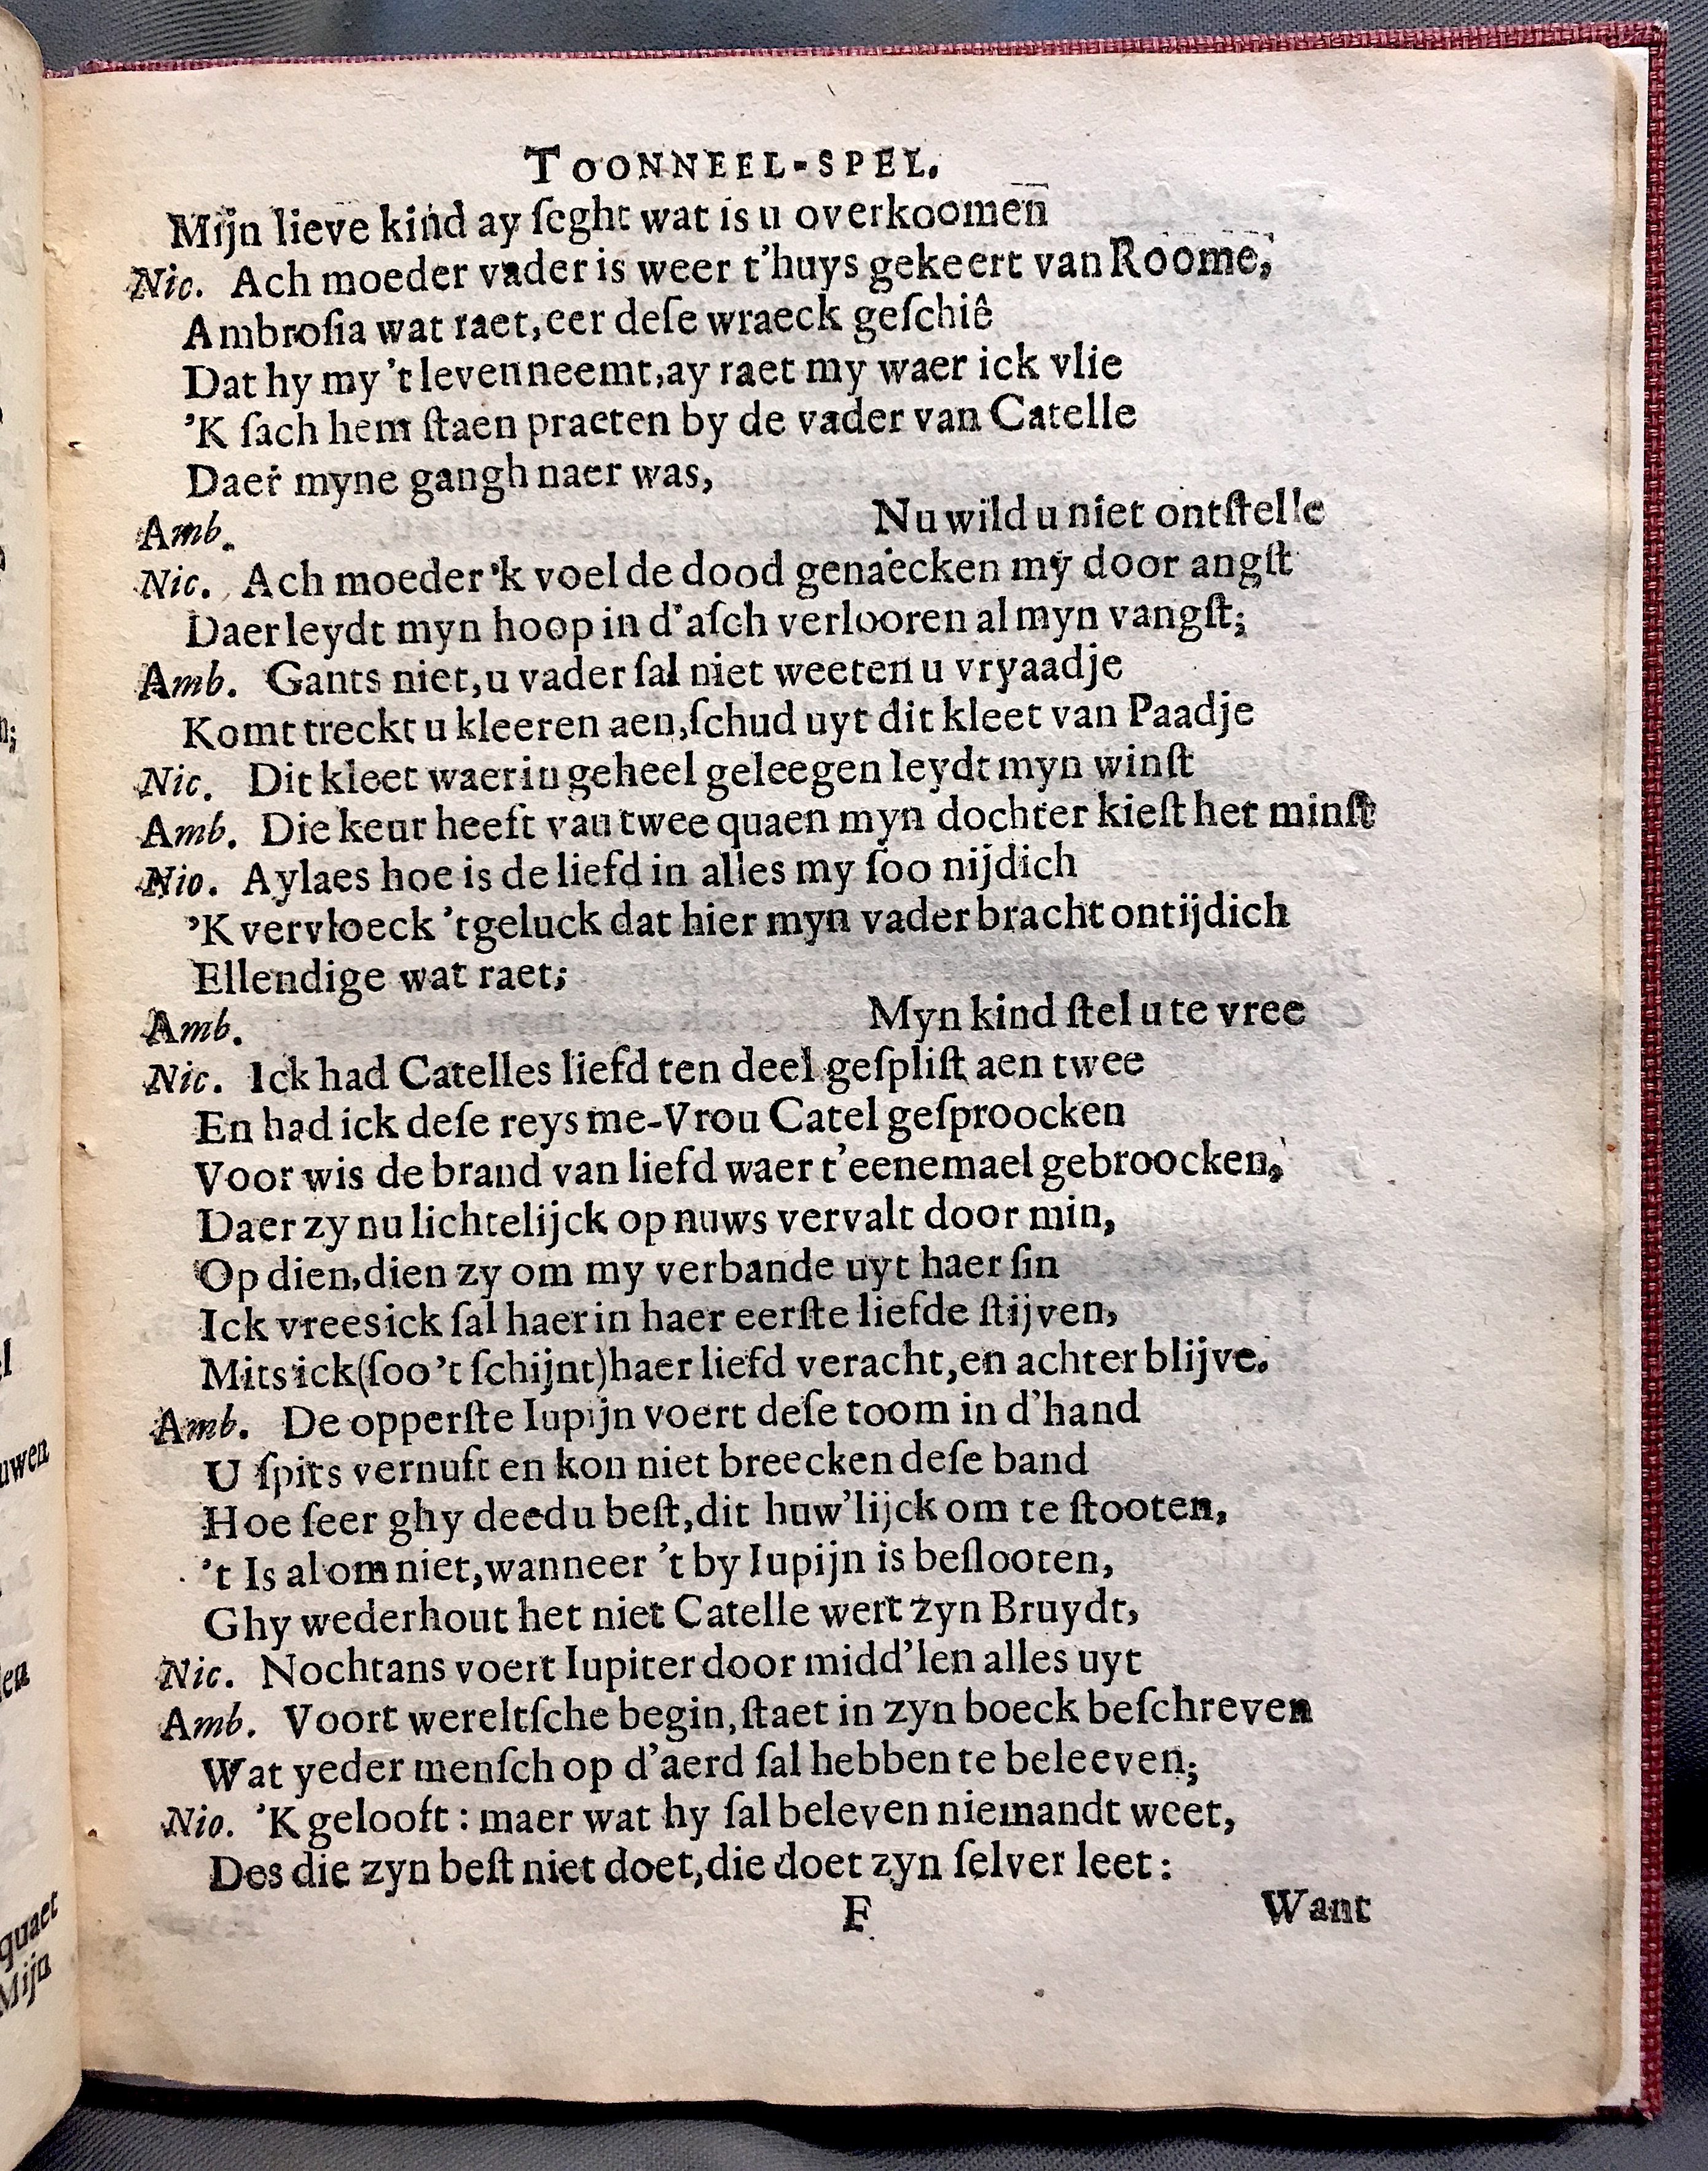 TOONNEEL-SPEL.
Mijn lieve kind ay ſeght wat is u overkoomen
Nic. Ach moeder vader is weer t'huys gekeert van Roome,
Ambroſia wat raet, eer deſe wraeck geſchiê
Dat hy my 't leven neemt, ay raet my waer ick vlie
'K ſach hem ſtaen praeten by de vader van Catelle
Daer myne gangh naer was,
Nu wild u niet ontſtelle
Amb.
Nic. Ach moeder 'k voel de dood genaecken my door angſt
Daer leydt myn hoop in d'aſch verlooren al myn vangſt;
Amb. Gants niet, u vader ſal niet weeten u vryaadje
Komt treckt u kleeren aen, ſchud uyt dit kleet van Paadje
Nic. Dit kleet waer in geheel geleegen leydt myn winſt
Amb. Die keur heeft vau twee quaen myn dochter kieſt het minſt
Nio. Aylaes hoe is de liefd in alles my ſoo nijdich
'K vervloeck 't geluck dat hier myn vader bracht ontijdich
Ellendige wat raet;
Myn kind ſtel u te vree
Amb.
Nic. Ick had Catelles liefd ten deel geſpliſt aen twee
En had ick deſe reys me-Vrou Catel geſproocken
Voor wis de brand van liefd waer t'eenemael gebroocken,
Daer zy nu lichtelijck op nuws vervalt door min,
Op dien, dien zy om my verbande uyt haer ſin
Ick vrees ick ſal haer in haer eerſte liefde ſtijven,
Mits ick (ſoo 't ſchijnt) haer liefd veracht, en achter blijve.
Amb. De opperſte Iupijn voert deſe toom in d'hand
U ſpits vernuft en kon niet breecken deſe band
Hoe ſeer ghy deed u beſt, dit huw'lijck om te ſtooten,
't Is al om niet, wanneer 't by Iupijn is beſlooten,
Ghy wederhout het niet Catelle wert zyn Bruydt,
Nic. Nochtans voert Iupiter door midd'len alles uyt
Amb. Voort wereltſche begin, ſtaet in zyn boeck beſchreven
Wat yeder menſch op d'aerd ſal hebben te beleeven;
Nio. 'K gelooft : maer wat hy ſal beleven niemandt weet,
Des die zyn beſt niet doet, die doet zyn ſelver leet :
F
Want
uwen
quaet
Mijn